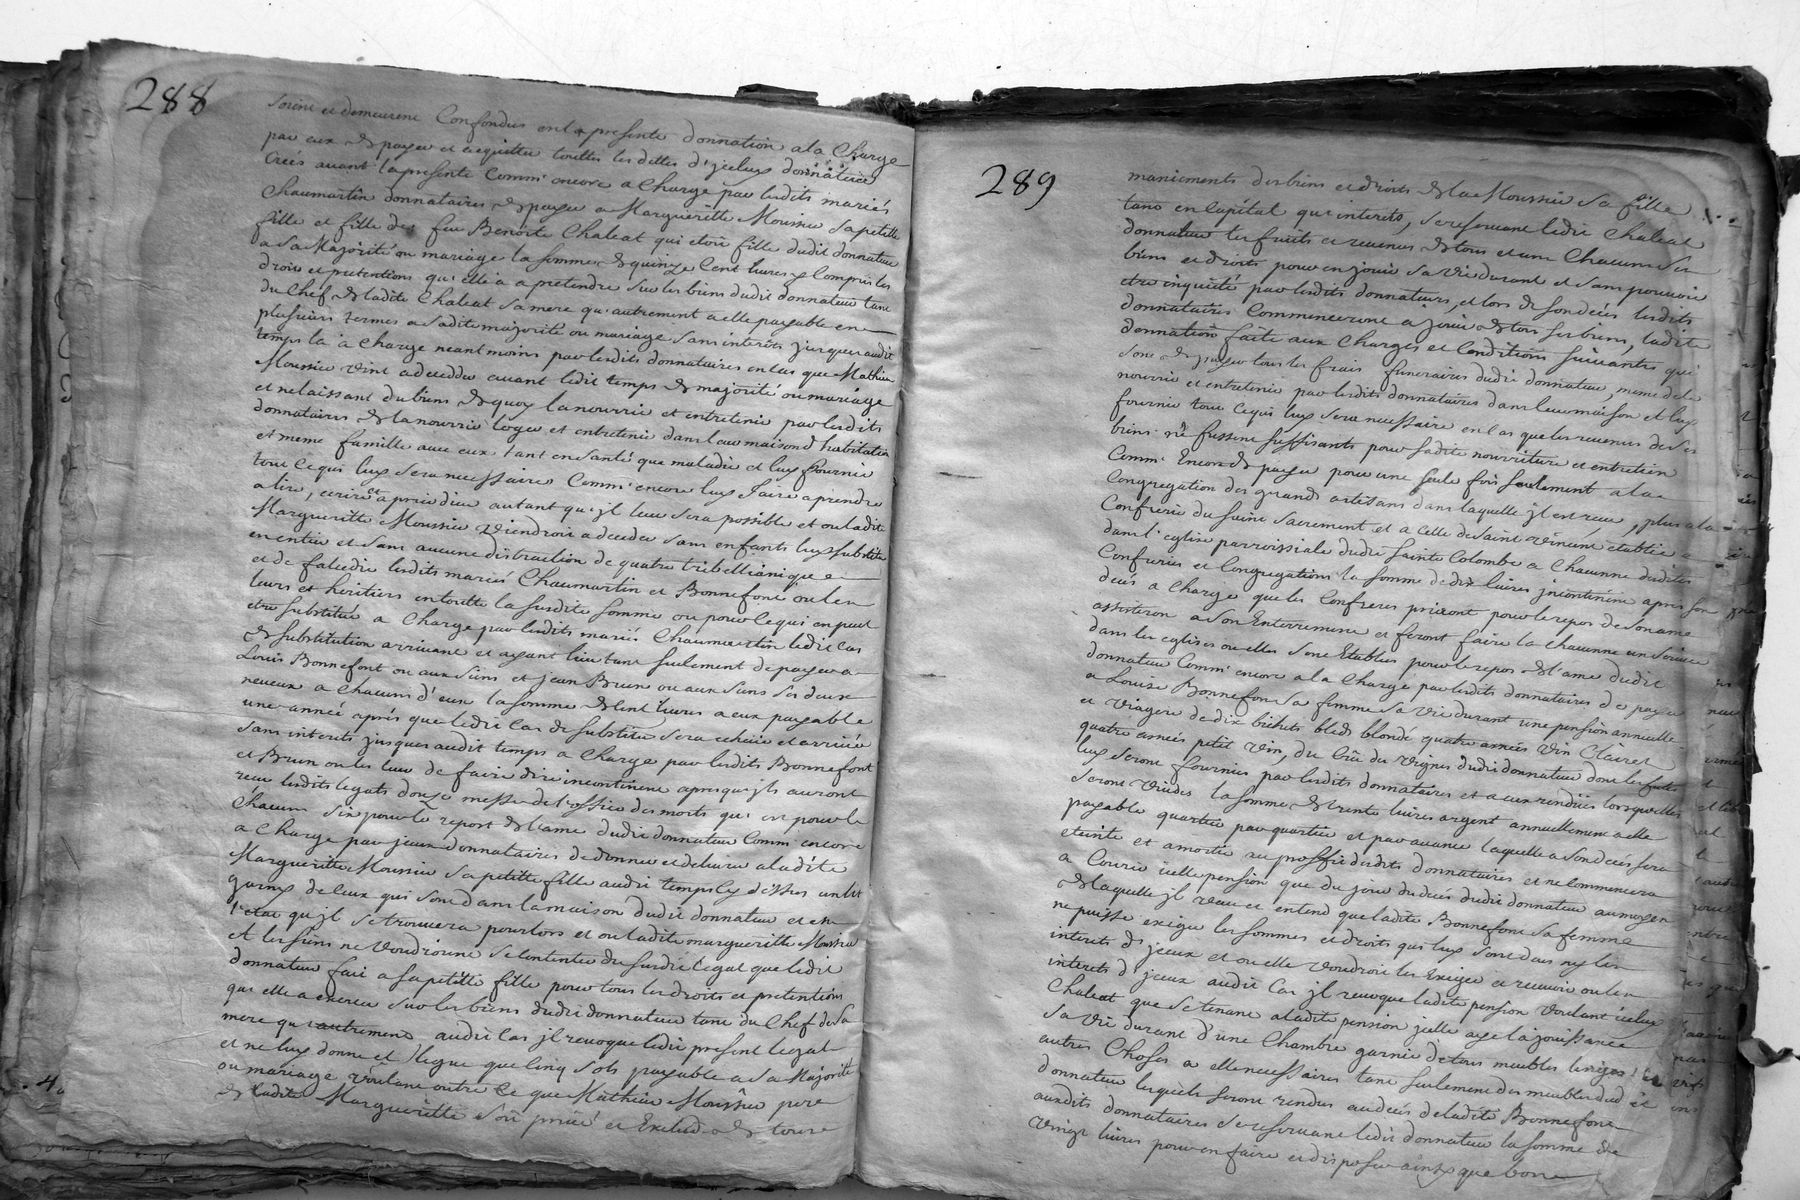 288
soient et demeurent Confondus en la presente donnation a la Charge
par eux de payer et acquitter touttes les dettes d'jceluy donnateur
Créés avant la presente Comm' encore a Charge par lesdits mariés
Chaumartin donnataires de payer a Margueritte Moussier sa petitte
fille et fille de feu Benoite Chaleat qui etoit fille dudit donnateur
a sa Majorité ou mariage la somme de quinze Cent livres y Compris les
droits et pretentions qu'elle a a pretendre sur les biens dudit donnateur tant
du Chef de ladite Chaleat sa mere qu'autrement a elle payable en
plusieurs termes a sadite majorité ou mariage sans interêts jusques audit
temps la a Charge neantmoins par lesdits donnataires en Cas que Mathieu
Moussier vint a deceder avant ledit temps de majorité ou mariage
et ne laissant du bien de quoy la nourrir et entretenir par lesdits
donnataires de la nourrir loger et entretenir dans leur maison d'habitation
et meme famille avec eux tant en santé que maladie et luy fournir
tout Ce qui luy sera necessaire Comm' encore luy faire aprendre
a lire, ecrire et a prier dieu autant qu'jl leur sera possible et ou ladite
Margueritte Moussier viendroit a deceder sans enfants luy substitue
en entier et sans aucune distraction de quatre tribellianique
et de falcidie lesdits mariés Chaumartin et Bonnefont ou les
leurs et heritiers en toutte la susdite somme ou pour Ce qui en peut
etre substitué a Charge par lesdits mariés Chaumartin ledit Cas
de substitution arrivant et ayant lieu tant seulement de payer a
Louis Bonnefont ou aux siens et jean Brun ou aux siens ses deux
neveux a Chacun d'eux la somme de Cent livres a eux payable
une année aprés que ledit Cas de substitu sera echeüe et arrivée
sans interets jusques audit temps a Charge par lesdits Bonnefont
et Brun ou les leur de faire dire incontinent apres qu'jls auront
reçu lesdits legats douze messe de l'office des morts qui est pour le
Chacun six pour le repos de l'ame dudit donnateur Comm' encore
a Charge par jceux donnataires de donner et delivrer a ladite
Margueritte Moussier sa petitte fille audit temps Cy dessus un lit
garny de Ceux qui sont dans la maison dudit donnateur et en
l'etat qu'jl se trouvera pour lors et ou ladite margueritte Moussier
et les siens ne voudroient se Contenter du susdit legat que ledit
donnateur fait a sa petitte fille pour tous les droits et pretentions
qui elle a exercer sur les biens dudit donnateur tant du Chef de sa
mere qu'autrement audit Cas jl revoque ledit present legat
et ne luy donne et legue que Cinq sols payable a sa Majorité
ou mariage voulant outre Ce que Mathieu Moussier pere
de ladite Margueritte soit privé et Exclud de toute
289
maniements des biens et droits de la Moussier sa fille
tant en Capital qu'interets, se reservant ledit Chaleat
donnateur les fruits et revenus de tous et un Chacun ses
biens et droits pour en jouir sa vie durant et sans pouvoir
etre inquiété par lesdits donnateurs, et lors de son decés lesdits
donnataires Commenceront a jouir de tous ses biens, ladite
donnation faite aux Charges et Conditions suivantes qui
sont de payer tous les frais funeraires dudit donnateur, meme de le
nourrir et entretenir par lesdits donnataires dans leur maison et luy
fournir tout Ce qui luy sera necessaire en Cas que les revenus de ses
biens ne fussent suffisants pour sadite nourriture et entretien
Comm' Encore de payer pour une seule fois seulement a la
Congregation des grands artisans dans laquelle jl est recu, plus a la
Confrerie du saint sacrement et a Celle de saint vincent établie
dans l'eglise parroissiale dudit sainte Colombe a Chacunne desdites
Confreries et Congregations la somme de dix livres jncontinent apres son
decés a Charge que les Confreres priront pour le repos de son ame
assisteron a son Enterrement et feront faire la chacunne un service
dans les eglises ou elles sont Etablies pour le repos de l'ame dudit
donnateur Comm' encore a la Charge par lesdits donnataires de payer
a Louise Bonnefon sa femme sa vie durant une pension annuelle
et viagere de dix bichets bleds blondé quatre année vin Clairet
quatre années petit vin, du Crû des vignes dudit donnateur dont les futs
luy seront fournies par lesdits donnataires et a eux rendües lorsqu'elles
seront vuides la somme de trente livres argent annuellement a elle
payable quartier par quartier et par avance laquelle a son deces sera
eteinte et amortie au proffit desdits donnataires et ne Commencera
a Courir icelle pension que du jour du decés dudit donnateur au moyen
de laquelle jl veut et entend que ladite Bonnefont sa femme
ne puisse exiger les sommes et droits qui luy sont dûs ny les
interets d'jceux et ou elle voudroit les Exiger et recevoir ou les
interets d'jceux audit Cas jl revoque ladite pension voulant icelux
Chaleat que se tenant a ladite pension jcelle aye la jouissance
sa vie durant d'une Chambre garnie de tous meubles linges
autres Choses a elle necessaires tant seulement des meubles dud
donnateur lesquels seront rendus au decés de ladite Bonnefont
auxdits donnataires se reservant ledit donnateur la somme de
vingt livres pour en faire et disposer ainsy que bon